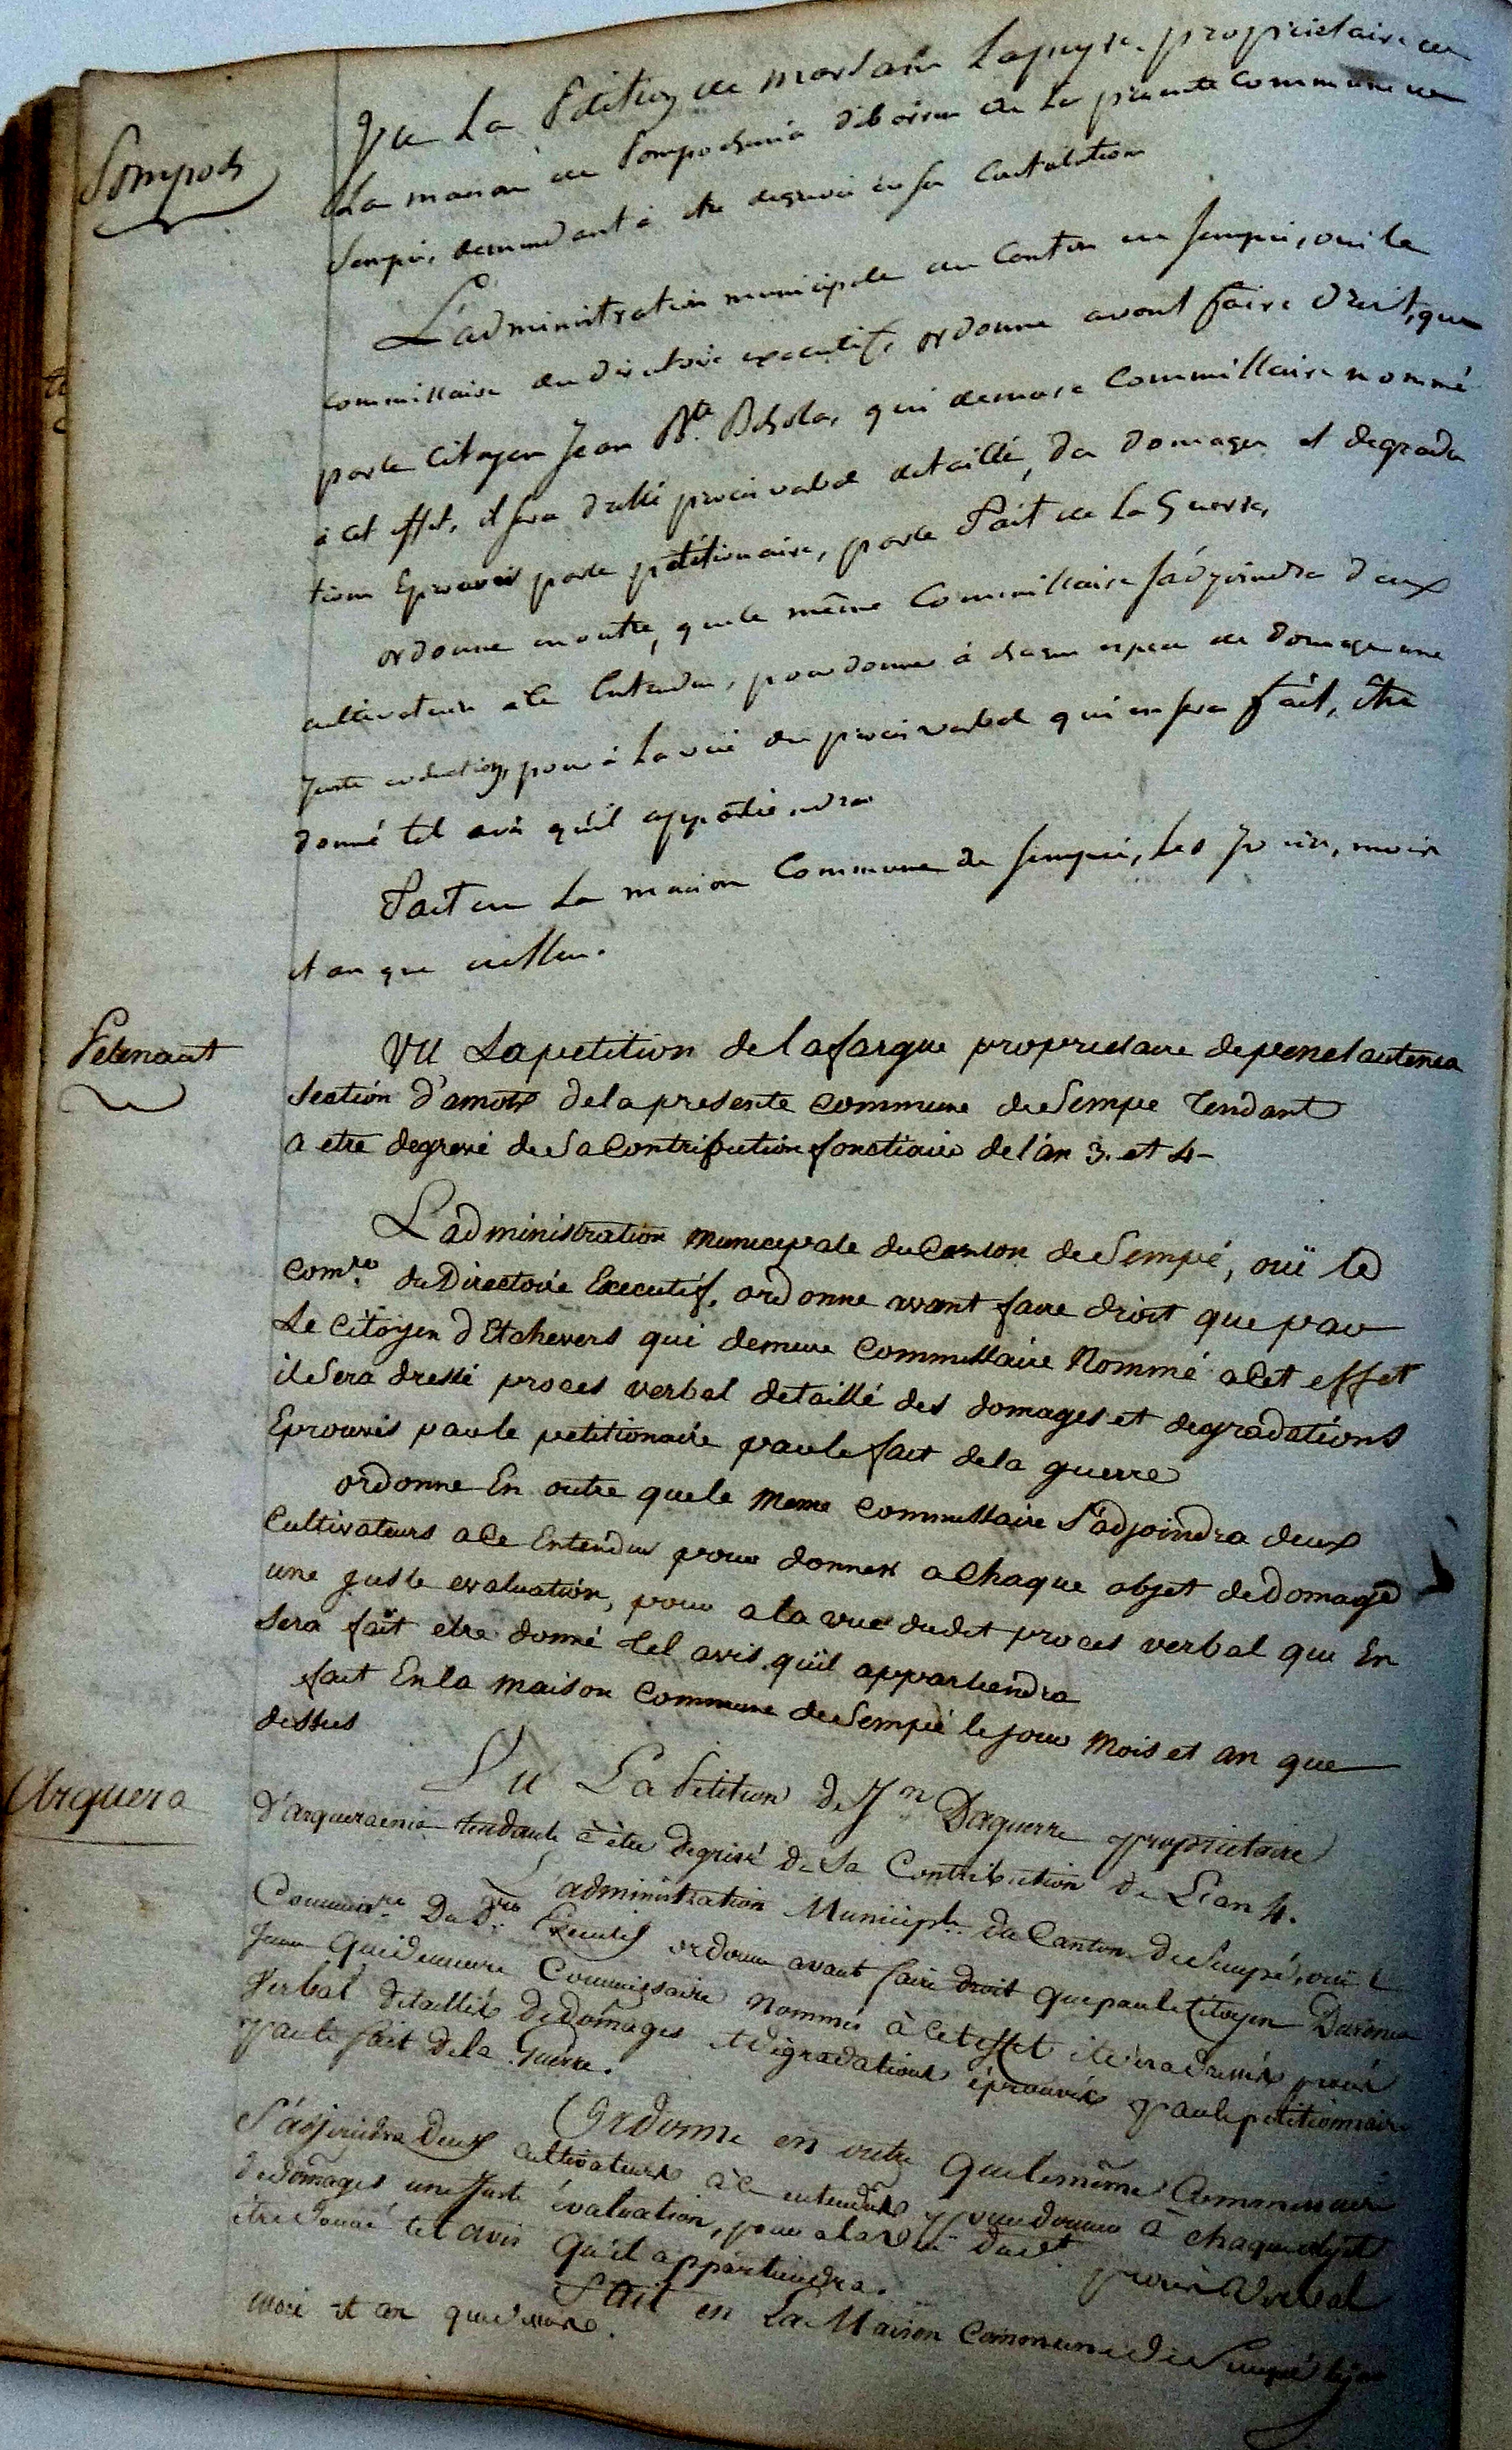 Vu La Petition de martin Lapeyre propriétaire de
Sompoch
La maison de Sompochenia d'iborrou de La presente Commune de
Sempé, demandant à être degrevé de sa Contribution
L'administration municipale du Canton de Sempée, oui le
commissaire du directoire executif, ordonne avant faire droit, que
par le Citoyen Jean Bte. qui demeure Commissaire nommé
à cet effet, il sera dressé procés verbal detaillé, des domages et degrada
tions Eprouvés par le pétitionaire, par le Fait de La Guerre,
ordonne en outre, que le même Commissaire s'adjoindra deux
cultivateurs à Ce Entendus, pour donner à chaque espece de domage une
Juste evaluation, pour à La vüe du procès verbal qui en sera fait, être
donné tel avis qu'il appartiendra
Fait en La maison Commune de sempée, Les Jour, mois
et an que dessus.
Petenaut
VU La petition de lafargue proprietaire de penelautenea
Section d'amots de la presente Commune de Sempe Tendant
a etre degrevé de Sa Contribution fonctiaire de l'an 3. et 4-
L'administration Municipale du Canton de Sempé, ouï le
Comre. du Directoire Executif, ordonne avant faire droit que par
Le Citoyen d'Etchevers qui demeure Commissaire Nommé a Cet effet
il Sera dressé proces verbal detaillé des domages et degradations
Eprouvés par le petitionaire par le fait de la guerre
ordonne En outre que le Meme Commissaire S'adjoindra deux
Cultivateurs a Ce Entendus pour donner a Chaque objet de Domage
une juste evaluation, pour a la vue dudit proces verbal qui En
Sera fait etre donné tel avis qu'il appartiendra
fait En la Maison Commune de Sempé le jour Mois et an que
dessus
Arquera
Vu La Petition de Jn Daguerre propriétaire
D'arquerainea tendante à être degrévé de Sa Contribution de L'an 4.
L'administration Municiple. du Canton de Sempé, oui le
Commisre. Du Dre. Executif ordonne avant faire droit que par le Citoyen
qui demeure Commissaire Nommé à Cet effet il sera dressé procès
Verbal détaillé de domages et dégradations éprouvés par le pétitionnaire
par le fait de la Guerre.
Ordonne en outre que le même Commissaire
S'adjoindra Deux cultivateurs à ce entendus pour donner à chaque objet
de domages une Juste évaluation, pour a la vue dudit procès verbal
être donné tel avis Qu'il appartiendra.
Fait en La Maison Commune de Sempé le jour
mois et an que dessus.